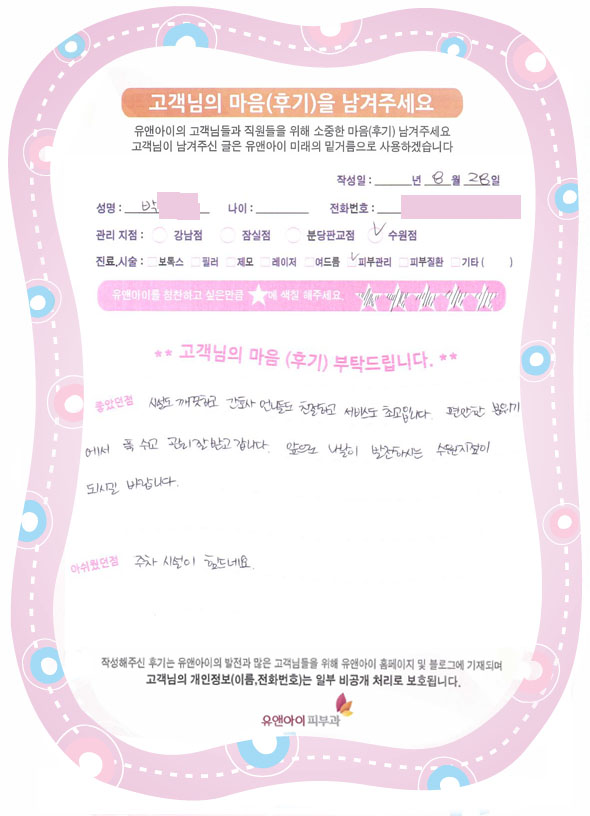 고객님의 마음(후기)을 남겨주세요
유앤아이의 고객님들과 직원들을 위해 소중한 마음(후기) 남겨주세요
고객님이 남겨주신 글은 유앤아이 미래의 밑거름으로 사용하겠습니다
작성일 : 년 8 월 28일
성명 : 박 나이 : 전화번호 :
관리 지점 : 강남점 잠실점 분당판교점 수원점
진료,시술 : 보톡스 필러 제모 레이저 여드름 피부관리 피부질환 기타 ( )
유앤아이를 칭찬하고 싶은만큼 ★에 색칠 해주세요.
** 고객님의 마음 (후기) 부탁드립니다. **
좋았던점 시설도 깨끗하고 간호사 언니들도 친절하고 서비스도 최고입니다. 편안한 분위기
에서 푹 쉬고 관리 잘 받고 갑니다. 앞으로 나날이 발전하시는 수원지점이
되시길 바랍니다.
아쉬웠던점 주차 시설이 힘드네요.
작성해주신 후기는 유앤아이의 발전과 많은 고객님들을 위해 유앤아이 홈페이지 및 블로그에 기재되며
고객님의 개인정보(이름,전화번호)는 일부 비공개 처리로 보호됩니다.
유앤아이피부과